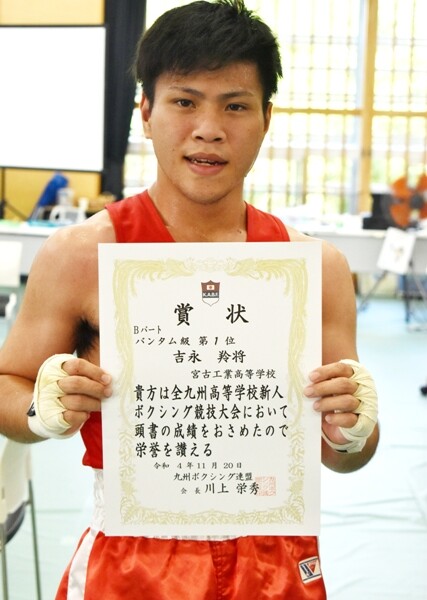 K.A.B.F.
賞状
Bパート
バンタム級 第1位
吉永 羚将
宮古工業高等学校
貴方は全九州高等学校新人
ボクシング競技大会において
頭書の成績をおさめたので
栄誉を讃える
令和 4年11月20日
九州ボクシング連盟
会長 川上栄秀